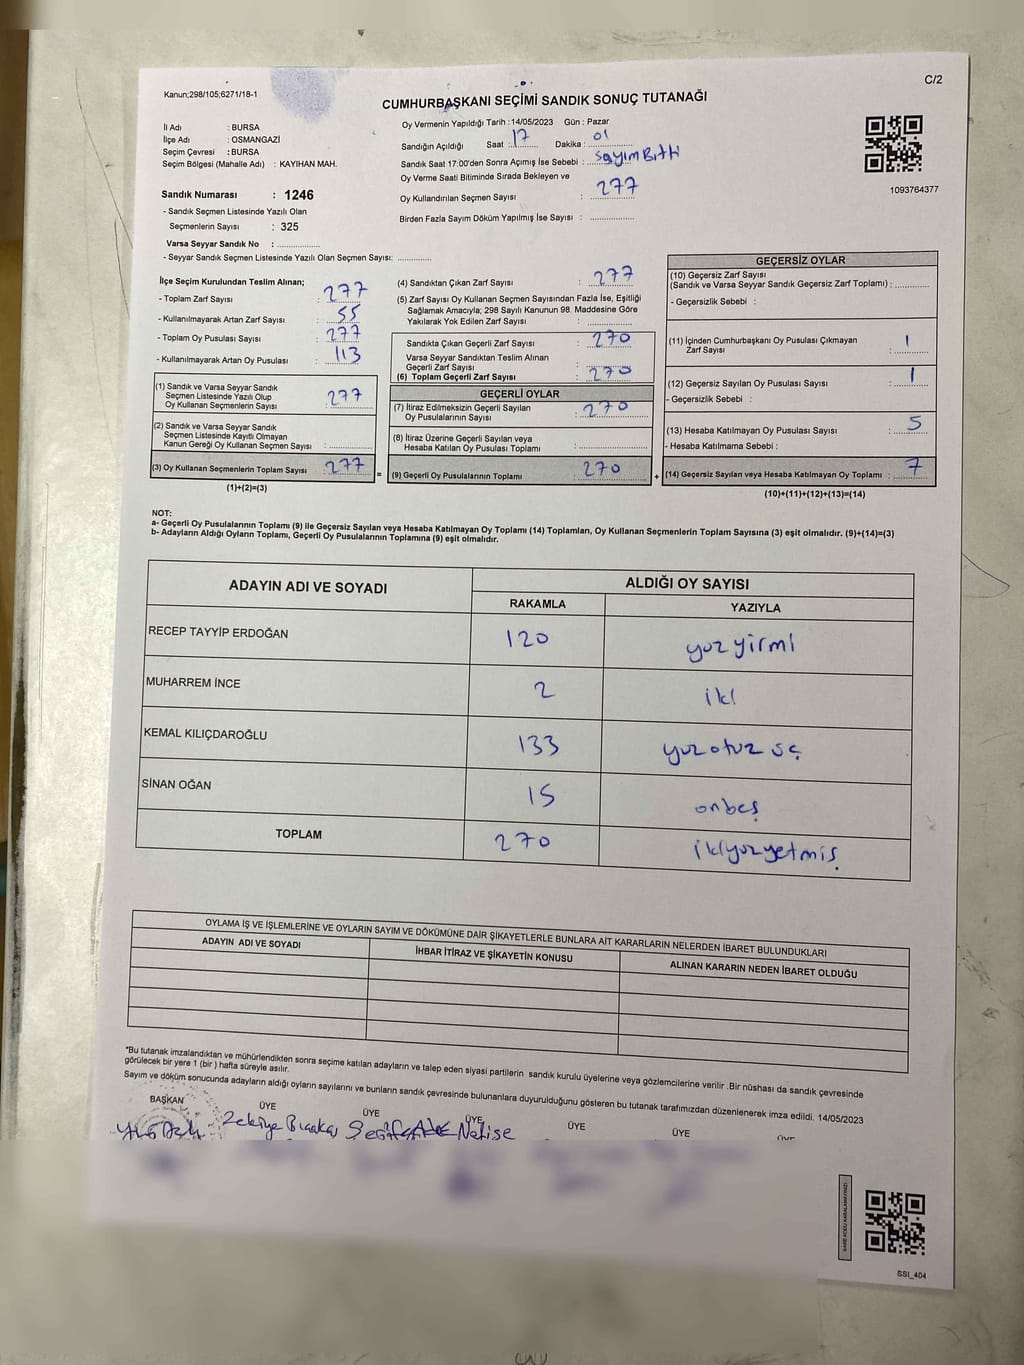 C/2
Kanun;298/105;6271/18-1
CUMHURBAŞKANI SEÇİMİ SANDIK SONUÇ TUTANAĞI
İl Adı : BURSA
İlçe Adı : OSMANGAZİ
Seçim Çevresi : BURSA
Seçim Bölgesi (Mahalle Adı) : KAYIHAN MAH.
Sandık Numarası : 1246
- Sandık Seçmen Listesinde Yazılı Olan
Seçmenlerin Sayısı : 325
Varsa Seyyar Sandık No : ..............
- Seyyar Sandık Seçmen Listesinde Yazılı Olan Seçmen Sayısı: ............
Oy Vermenin Yapıldığı Tarih : 14/05/2023 Gün : Pazar
Sandığın Açıldığı Saat : 17 Dakika : 01
Sandık Saat 17:00'den Sonra Açımış İse Sebebi : Sayım Bitti
Oy Verme Saati Bitiminde Sırada Bekleyen ve
Oy Kullandırılan Seçmen Sayısı : 277
Birden Fazla Sayım Döküm Yapılmış İse Sayısı : ..............
1093764377
İlçe Seçim Kurulundan Teslim Alınan;
- Toplam Zarf Sayısı : 277
- Kullanılmayarak Artan Zarf Sayısı : 55
- Toplam Oy Pusulası Sayısı : 277
- Kullanılmayarak Artan Oy Pusulası : 113
(1) Sandık ve Varsa Seyyar Sandık
Seçmen Listesinde Yazılı Olup
Oy Kullanan Seçmenlerin Sayısı : 277
(2) Sandık ve Varsa Seyyar Sandık
Seçmen Listesinde Kayıtlı Olmayan
Kanun Gereği Oy Kullanan Seçmen Sayısı : ..............
(3) Oy Kullanan Seçmenlerin Toplam Sayısı : 277
(1)+(2)=(3)
=
(4) Sandıktan Çıkan Zarf Sayısı : 277
(5) Zarf Sayısı Oy Kullanan Seçmen Sayısından Fazla İse, Eşitliği
Sağlamak Amacıyla; 298 Sayılı Kanunun 98. Maddesine Göre
Yakılarak Yok Edilen Zarf Sayısı : ..............
Sandıkta Çıkan Geçerli Zarf Sayısı : 270
Varsa Seyyar Sandıktan Teslim Alınan
Geçerli Zarf Sayısı :
(6) Toplam Geçerli Zarf Sayısı : 270
GEÇERLİ OYLAR
(7) İtiraz Edilmeksizin Geçerli Sayılan
Oy Pusulalarının Sayısı : 270
(8) İtiraz Üzerine Geçerli Sayılan veya
Hesaba Katılan Oy Pusulası Toplamı : ..............
(9) Geçerli Oy Pusulalarının Toplamı : 270
+
GEÇERSİZ OYLAR
(10) Geçersiz Zarf Sayısı
(Sandık ve Varsa Seyyar Sandık Geçersiz Zarf Toplamı) : ............
- Geçersizlik Sebebi :
(11) İçinden Cumhurbaşkanı Oy Pusulası Çıkmayan
Zarf Sayısı : 1
(12) Geçersiz Sayılan Oy Pusulası Sayısı : 1
- Geçersizlik Sebebi :
(13) Hesaba Katılmayan Oy Pusulası Sayısı : 5
- Hesaba Katılmama Sebebi :
(14) Geçersiz Sayılan veya Hesaba Katılmayan Oy Toplamı : 7
(10)+(11)+(12)+(13)=(14)
NOT:
a- Geçerli Oy Pusulalarının Toplamı (9) ile Geçersiz Sayılan veya Hesaba Katılmayan Oy Toplamı (14) Toplamları, Oy Kullanan Seçmenlerin Toplam Sayısına (3) eşit olmalıdır. (9)+(14)=(3)
b- Adayların Aldığı Oyların Toplamı, Geçerli Oy Pusulalarının Toplamına (9) eşit olmalıdır.
ADAYIN ADI VE SOYADI ALDIĞI OY SAYISI
RAKAMLA YAZIYLA
RECEP TAYYİP ERDOĞAN 120 yüzyirmi
MUHARREM İNCE 2 iki
KEMAL KILIÇDAROĞLU 133 yuzotuz üç
SİNAN OĞAN 15 onbeş
TOPLAM 270 ikiyuzyetmiş
OYLAMA İŞ VE İŞLEMLERİNE VE OYLARIN SAYIM VE DÖKÜMÜNE DAİR ŞİKAYETLERLE BUNLARA AİT KARARLARIN NELERDEN İBARET BULUNDUKLARI
ADAYIN ADI VE SOYADI İHBAR İTİRAZ VE ŞİKAYETİN KONUSU ALINAN KARARIN NEDEN İBARET OLDUĞU
*Bu tutanak imzalandıktan ve mühürlendikten sonra seçime katılan adayların ve talep eden siyasi partilerin sandık kurulu üyelerine veya gözlemcilerine verilir .Bir nüshası da sandık çevresinde
görülecek bir yere 1 (bir ) hafta süreyle asılır.
Sayım ve döküm sonucunda adayların aldığı oyların sayılarını ve bunların sandık çevresinde bulunanlara duyurulduğunu gösteren bu tutanak tarafımızdan düzenlenerek imza edildi. 14/05/2023
BAŞKAN ÜYE ÜYE ÜYE ÜYE ÜYE ÜYE
Zekiye Nefise
SSI_404